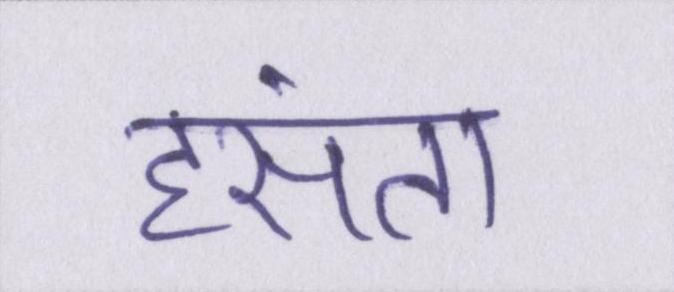 हसंता